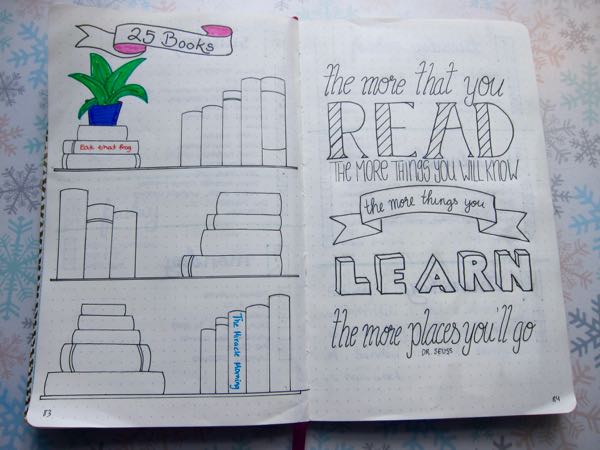 25 Books
Eat that frog
The Miracle Morning
83
the more that you
READ
THE MORE THINGS YOU WILL KNOW
the more things you
LEARN
the more places you'll go
DR. SEUSS
84